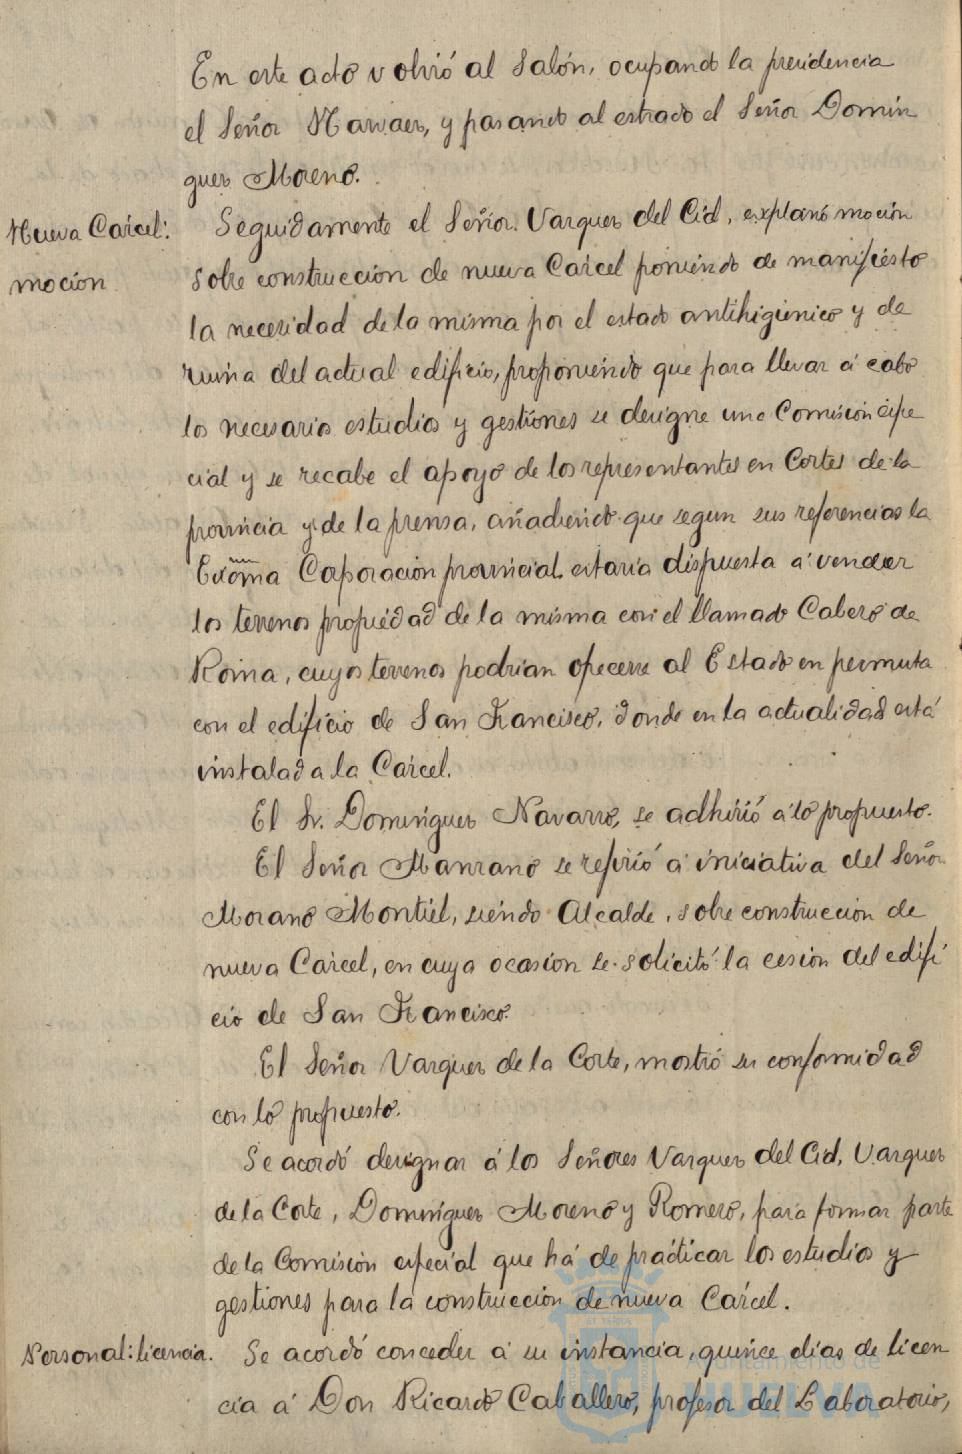 En este acto volvió al Salón, ocupando la presidencia
el Señor Narvaez, y pasando al estrado el Señor Domin
guez Moreno.
Nueva Carcel:
moción.
Seguidamente el Señor Vazquez del Cid, explanó moción
sobre construccion de nueva Carcel poniendo de manifiesto
la necesidad de la misma por el estado antihigienico y de
ruina del actual edificio, proponiendo que para llevar á cabo
los necesarios estudios y gestiones se designe una Comision espe
cial y se recabe el apoyo de los representantes en Cortes de la
provincia y de la prensa, añadiendo que segun sus referencias la
Excma Corporacion provincial estaria dispuesta á vender
los terrenos propiedad de la misma en el llamado Cabezo de
Roma, cuyos terrenos podrian ofrecerse al Estado en permuta
con el edificio de San Francisco, donde en la actualidad está
instalada la Carcel.
El Sr. Dominguez Navarro, se adhirió á lo propuesto.
El Señor Manzano se refirió á iniciativa del Señor
Morano Montiel, siendo Alcalde, sobre construccion de
nueva Carcel, en cuya ocasion se solicitó la cesion del edifi
cio de San Francisco.
El Señor Vazquez de la Corte, mostró su conformidad
con lo propuesto.
Se acordó designar á los Señores Vazquez del Cid, Vazquez
de la Corte, Dominguez Moreno y Romero, para formar parte
de la Comision especial que há de practicar los estudios y
gestiones para la construccion de nueva Carcel.
Personal: licencia.
Se acordó conceder á su instancia, quince dias de licen
cia á Don Ricardo Caballero, profesor del Laboratorio,
Ayuntamiento de
HUELVA